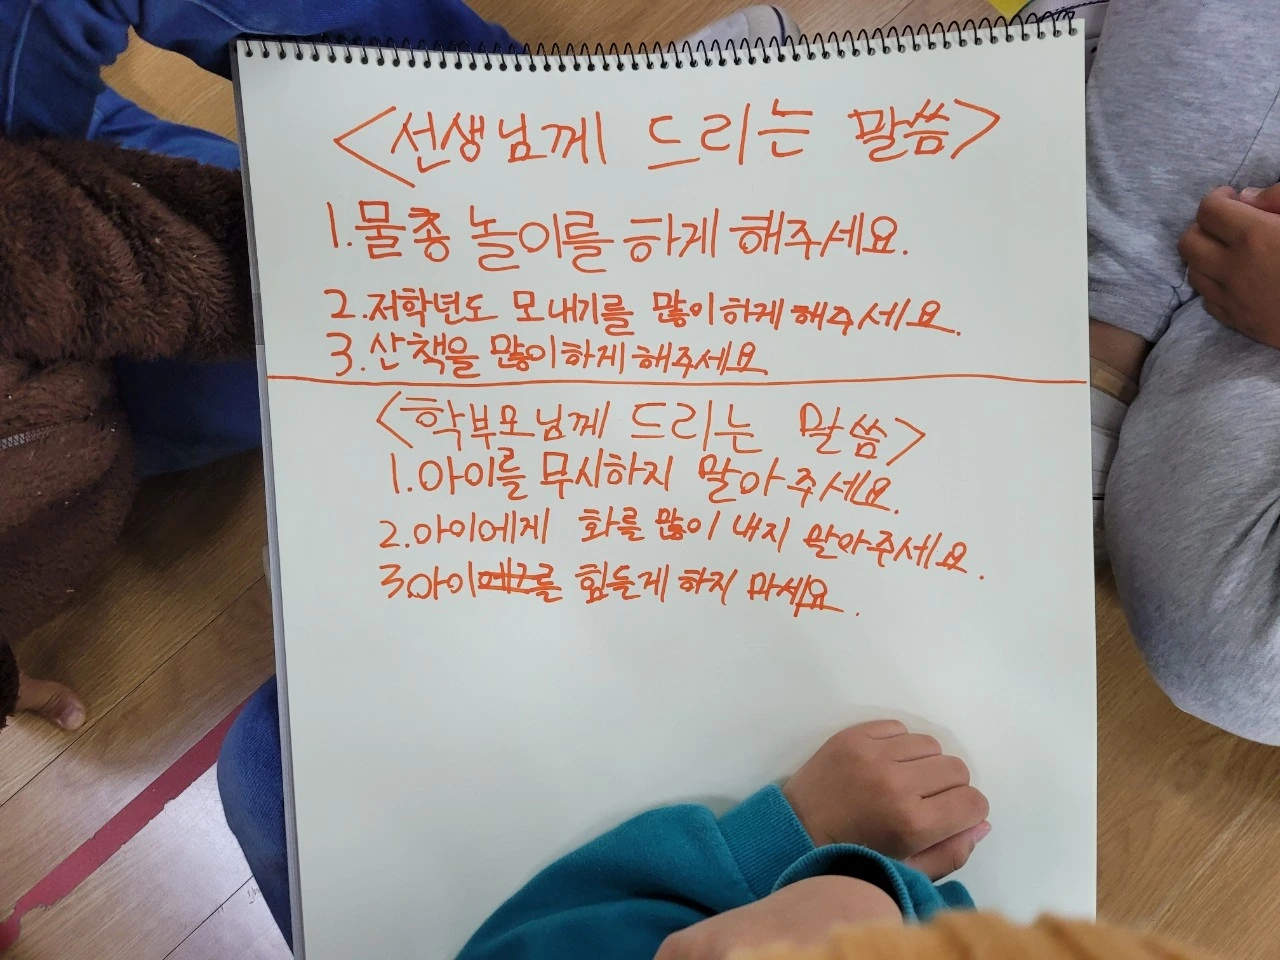 <선생님께 드리는 말씀>
1.물총 놀이를 하게 해주세요.
2.저학년도 모내기를 많이하게 해주세요.
3.산책을 많이하게 해주세요
<학부모님께 드리는 말씀>
1.아이를 무시하지 말아주세요.
2.아이에게 화를 많이 내지 말아주세요.
3.아이를 힘들게 하지 마세요.